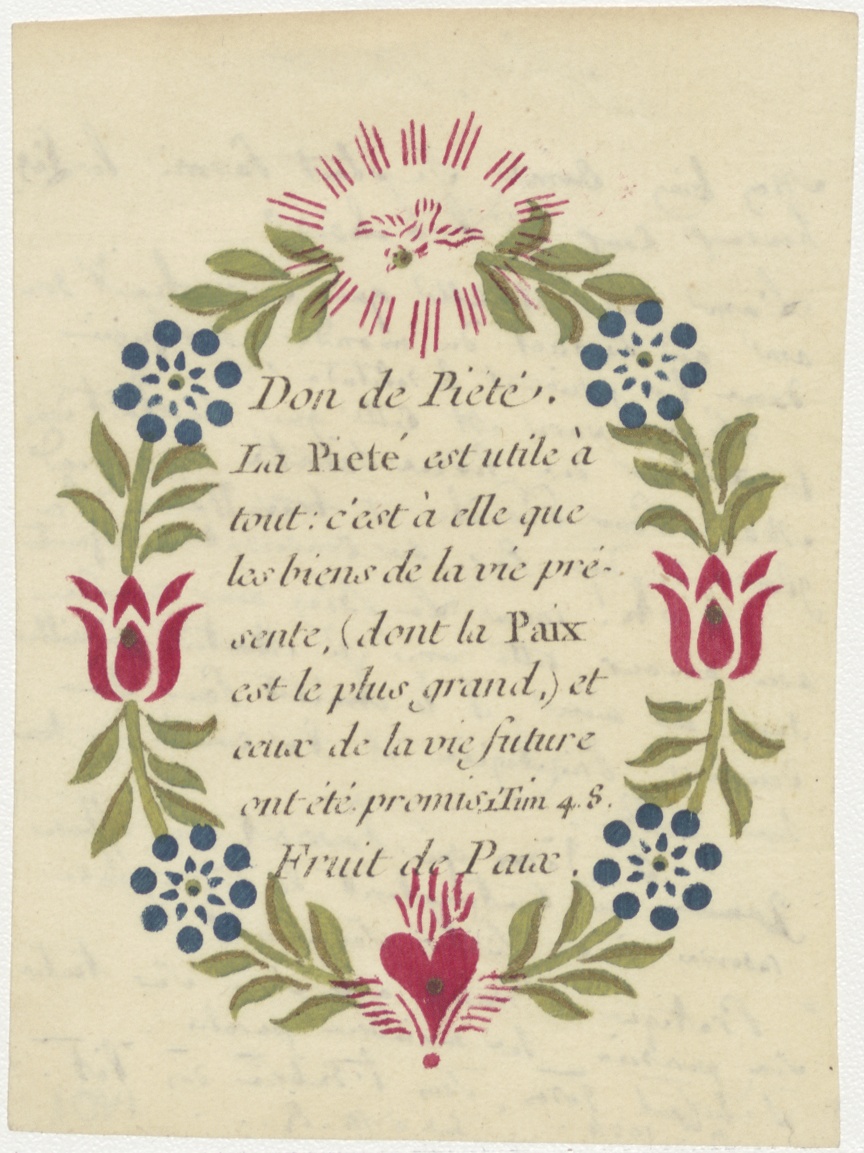 Don de Piété.
La Pieté est utile à
tout: c'est à elle que
les biens de la vie pré-
sente, (dont la Paix
est le plus grand,) et
ceux de la vie future
ont été promis. 1 Tim 4. 8.
Fruit de Paix.